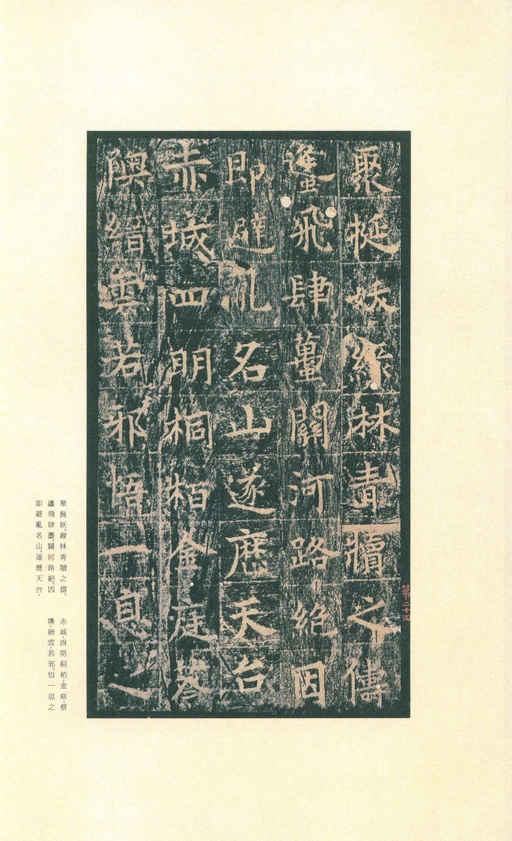 聚梃妖綠林青犢之儔
蠭飛肆蠆關河路絕因
即避亂名山遂歷天台
赤城四明桐栢金庭蔡
隩縉雲若邪悟一息之
第二十四
聚梃妖，綠林青犢之儔。
蠭飛肆蠆關河路絕，因
即避亂名山，遂歷天台，
赤城，四明桐栢，金庭，蔡
隩，縉雲，若邪，悟一息之